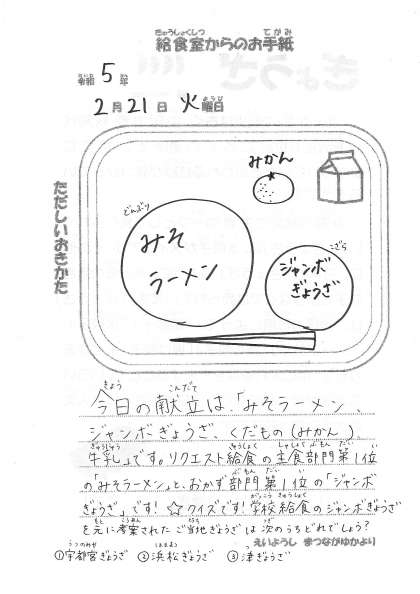 給食室からのお手紙
令和5年
2月21日火曜日
ただしいおきかた
みかん
どんぶり
みそ
ラーメン
こざら
ジャンボ
ぎょうざ
今日の献立は、「みそラーメン、
ジャンボぎょうざ、くだもの(みかん)
牛乳」です。リクエスト給食の主食部門第1位
の「みそラーメン」と、おかず部門第1位の「ジャンボ
ぎょうざ」です！☆クイズです！学校給食のジャンボぎょうざ
を元に考案されたご当地ぎょうざは次のうちどれでしょう？
えいようし まつながゆかより
①宇都宮ぎょうざ ②浜松ぎょうざ ③津ぎょうざ